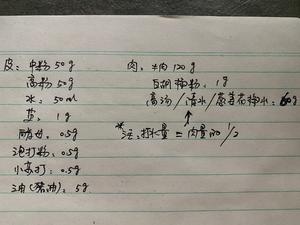 皮：中粉 50g
高粉 50g
水：50ml
盐：1g
酵母：0.5g
泡打粉：0.5g
小苏打：0.5g
油(猪油)：5g
肉：羊肉 120g
白胡椒粉：1g
高汤/清水/葱姜花椒水：60g
*注：打水量=肉量的 1/2